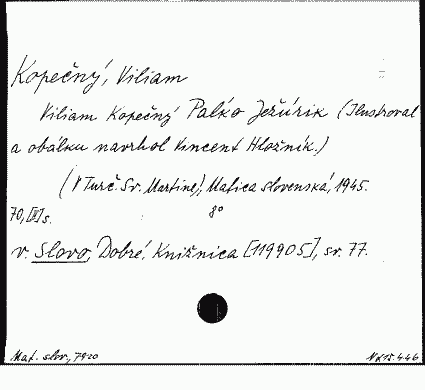 Kopečný, Viliam
Viliam Kopečný Palko Ježúrik (Ilustroval
a obálku navrhol Vincent Hložník.)
(V Turč. Sv. Martine), Matica slovenská, 1945.
70, [II] s. 8°
v. Slovo, Dobré. Knižnica [119905], sv. 77.
Mat. slov., 7920